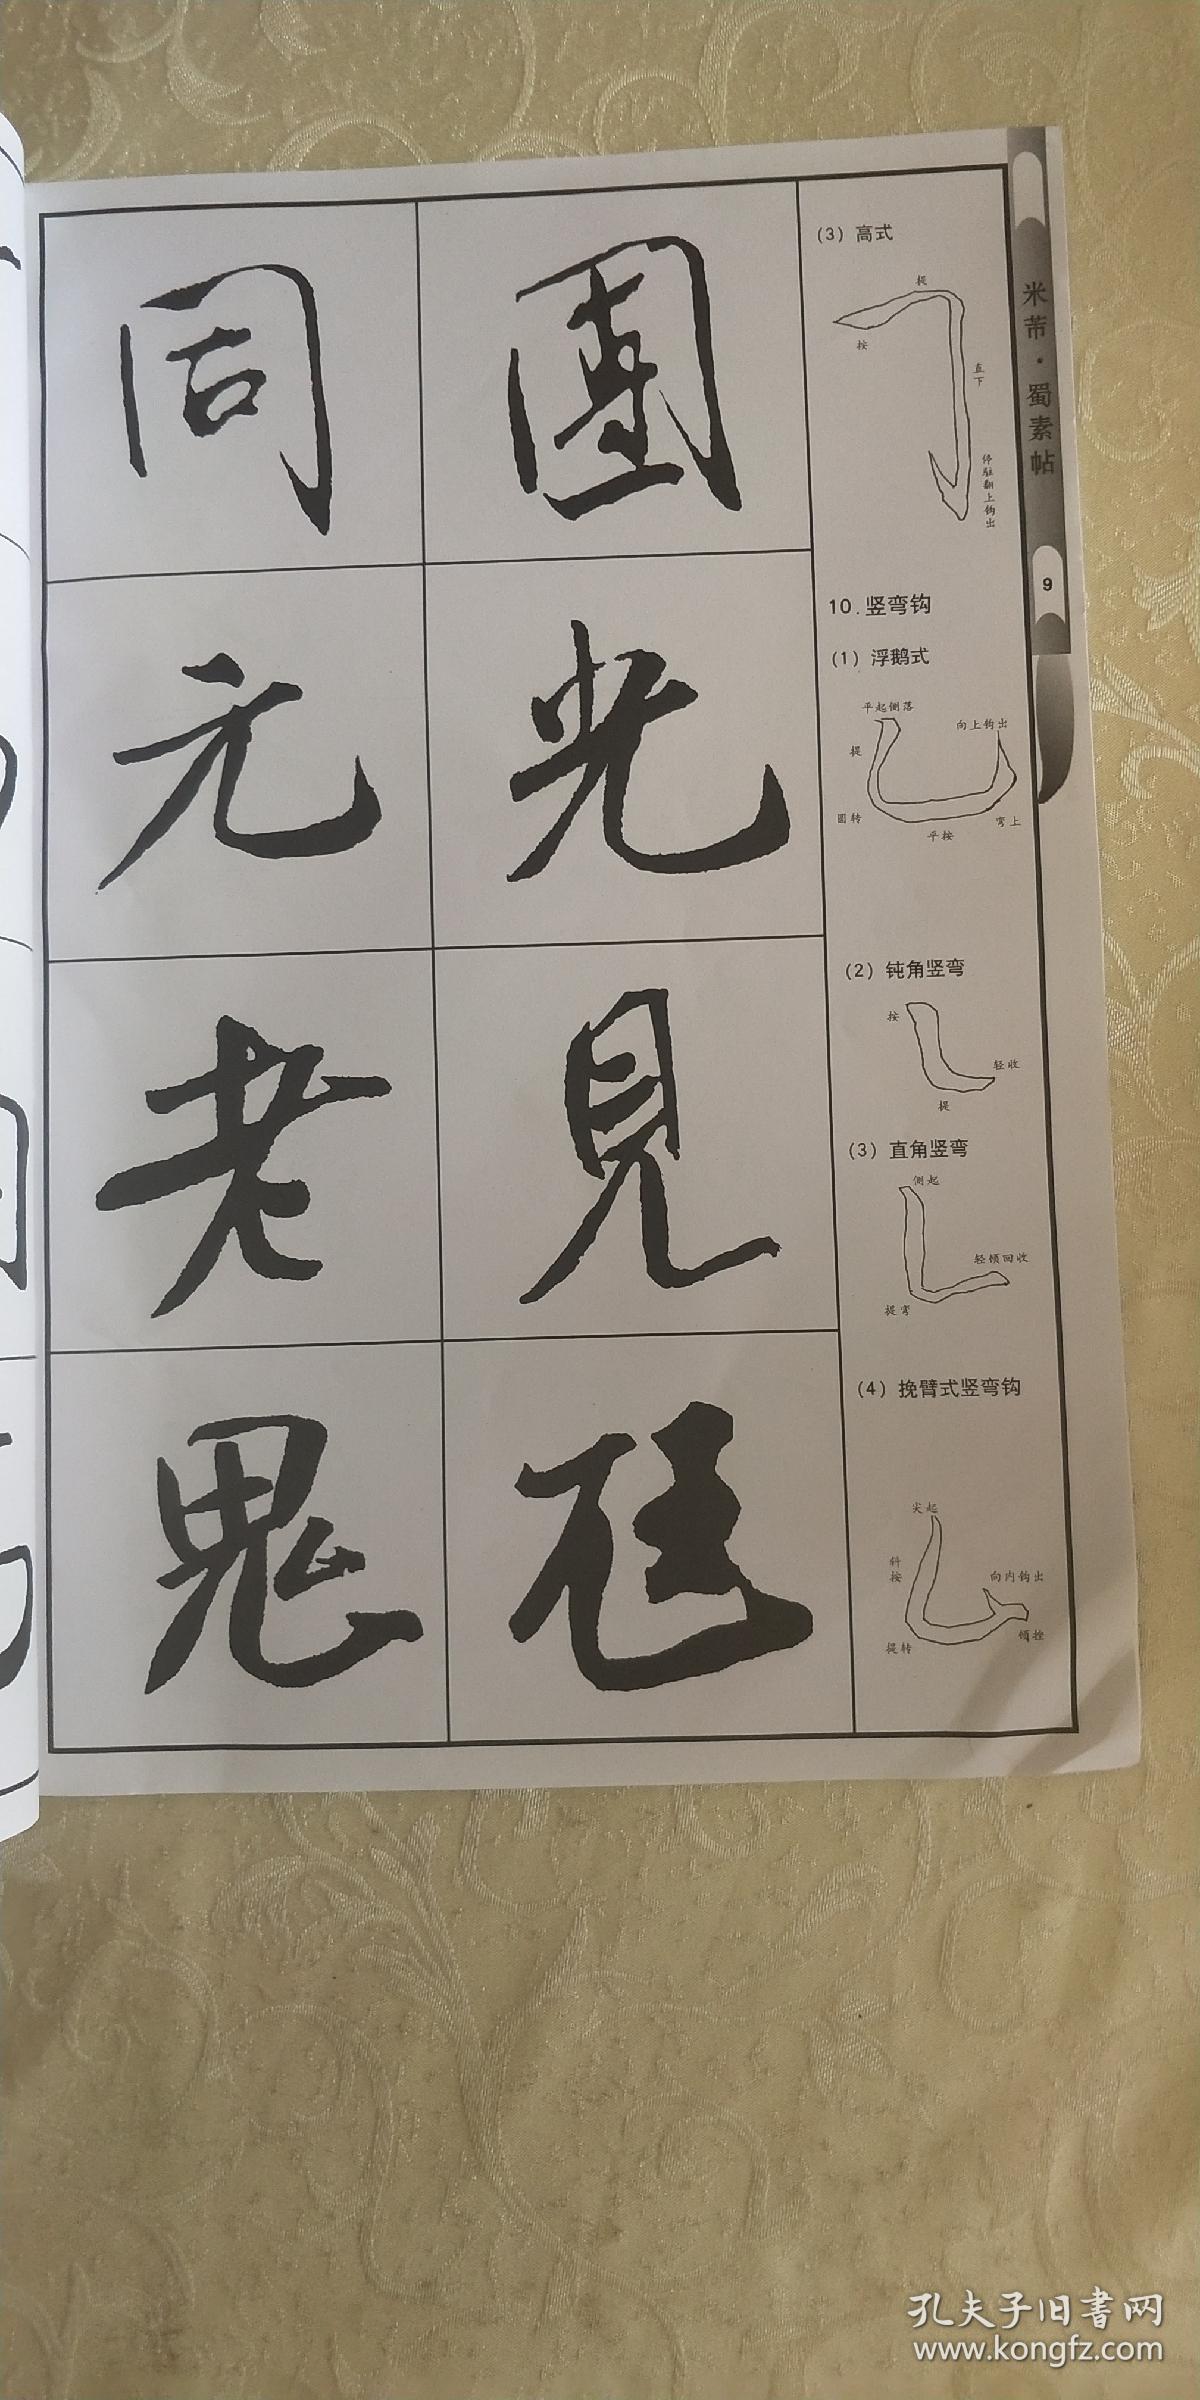 米芾·蜀素帖
9
(3) 高式
提
按
直下
停驻翻上钩出
團
同
10.竖弯钩
(1) 浮鹅式
平起侧落
向上钩出
提
圆转
平按
弯上
光
元
(2) 钝角竖弯
按
轻收
提
(3) 直角竖弯
侧起
轻顿回收
提弯
見
老
(4) 挽臂式竖弯钩
尖起
斜按
向内钩出
提转
顿挫
鬼
孔夫子旧书网
www.kongfz.com